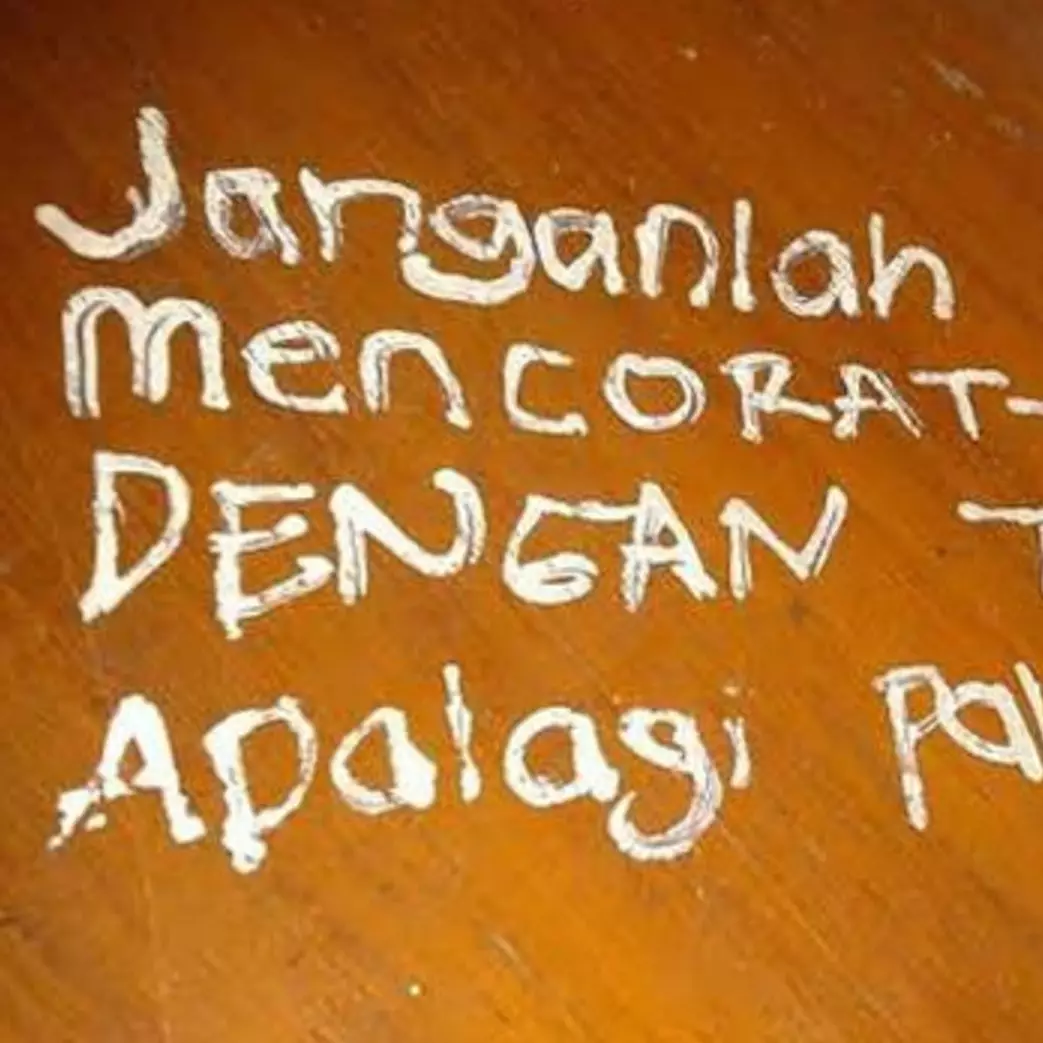 Janganlah
menCORAT-
DENGAN
Apalagi